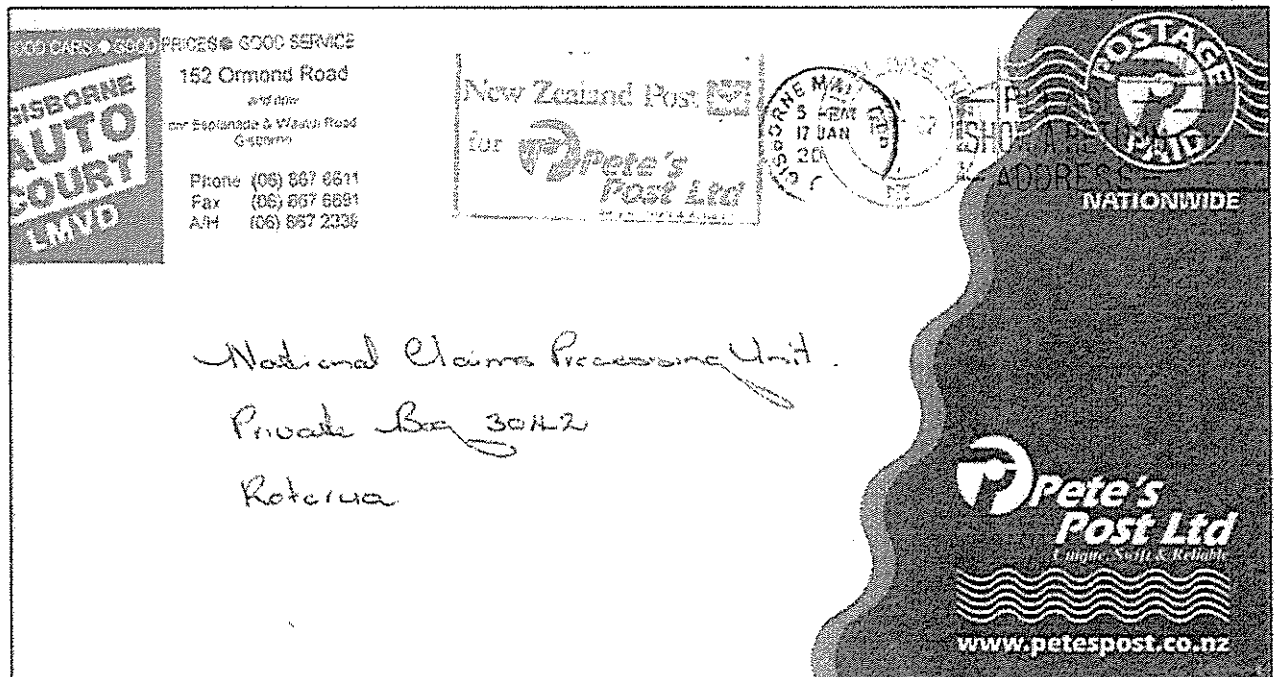 GOOD CARS ● GOOD PRICES ● GOOD SERVICE
GISBORNE
AUTO
COURT
LMVD
152 Ormond Road
and now
cnr Esplanade & Wainui Road
Gisborne
Phone (06) 867 6611
Fax (06) 867 6691
A/H (06) 867 2338
New Zealand Post
for Pete's
Post Ltd
GISBORNE MAIL
5
17 JAN
20
SHOW A RETURN
ADDRESS
POSTAGE
PAID
NATIONWIDE
National Claims Processing Unit.
Private Bag 3042
Rotorua
Pete's
Post Ltd
Unique, Swift & Reliable
www.petespost.co.nz